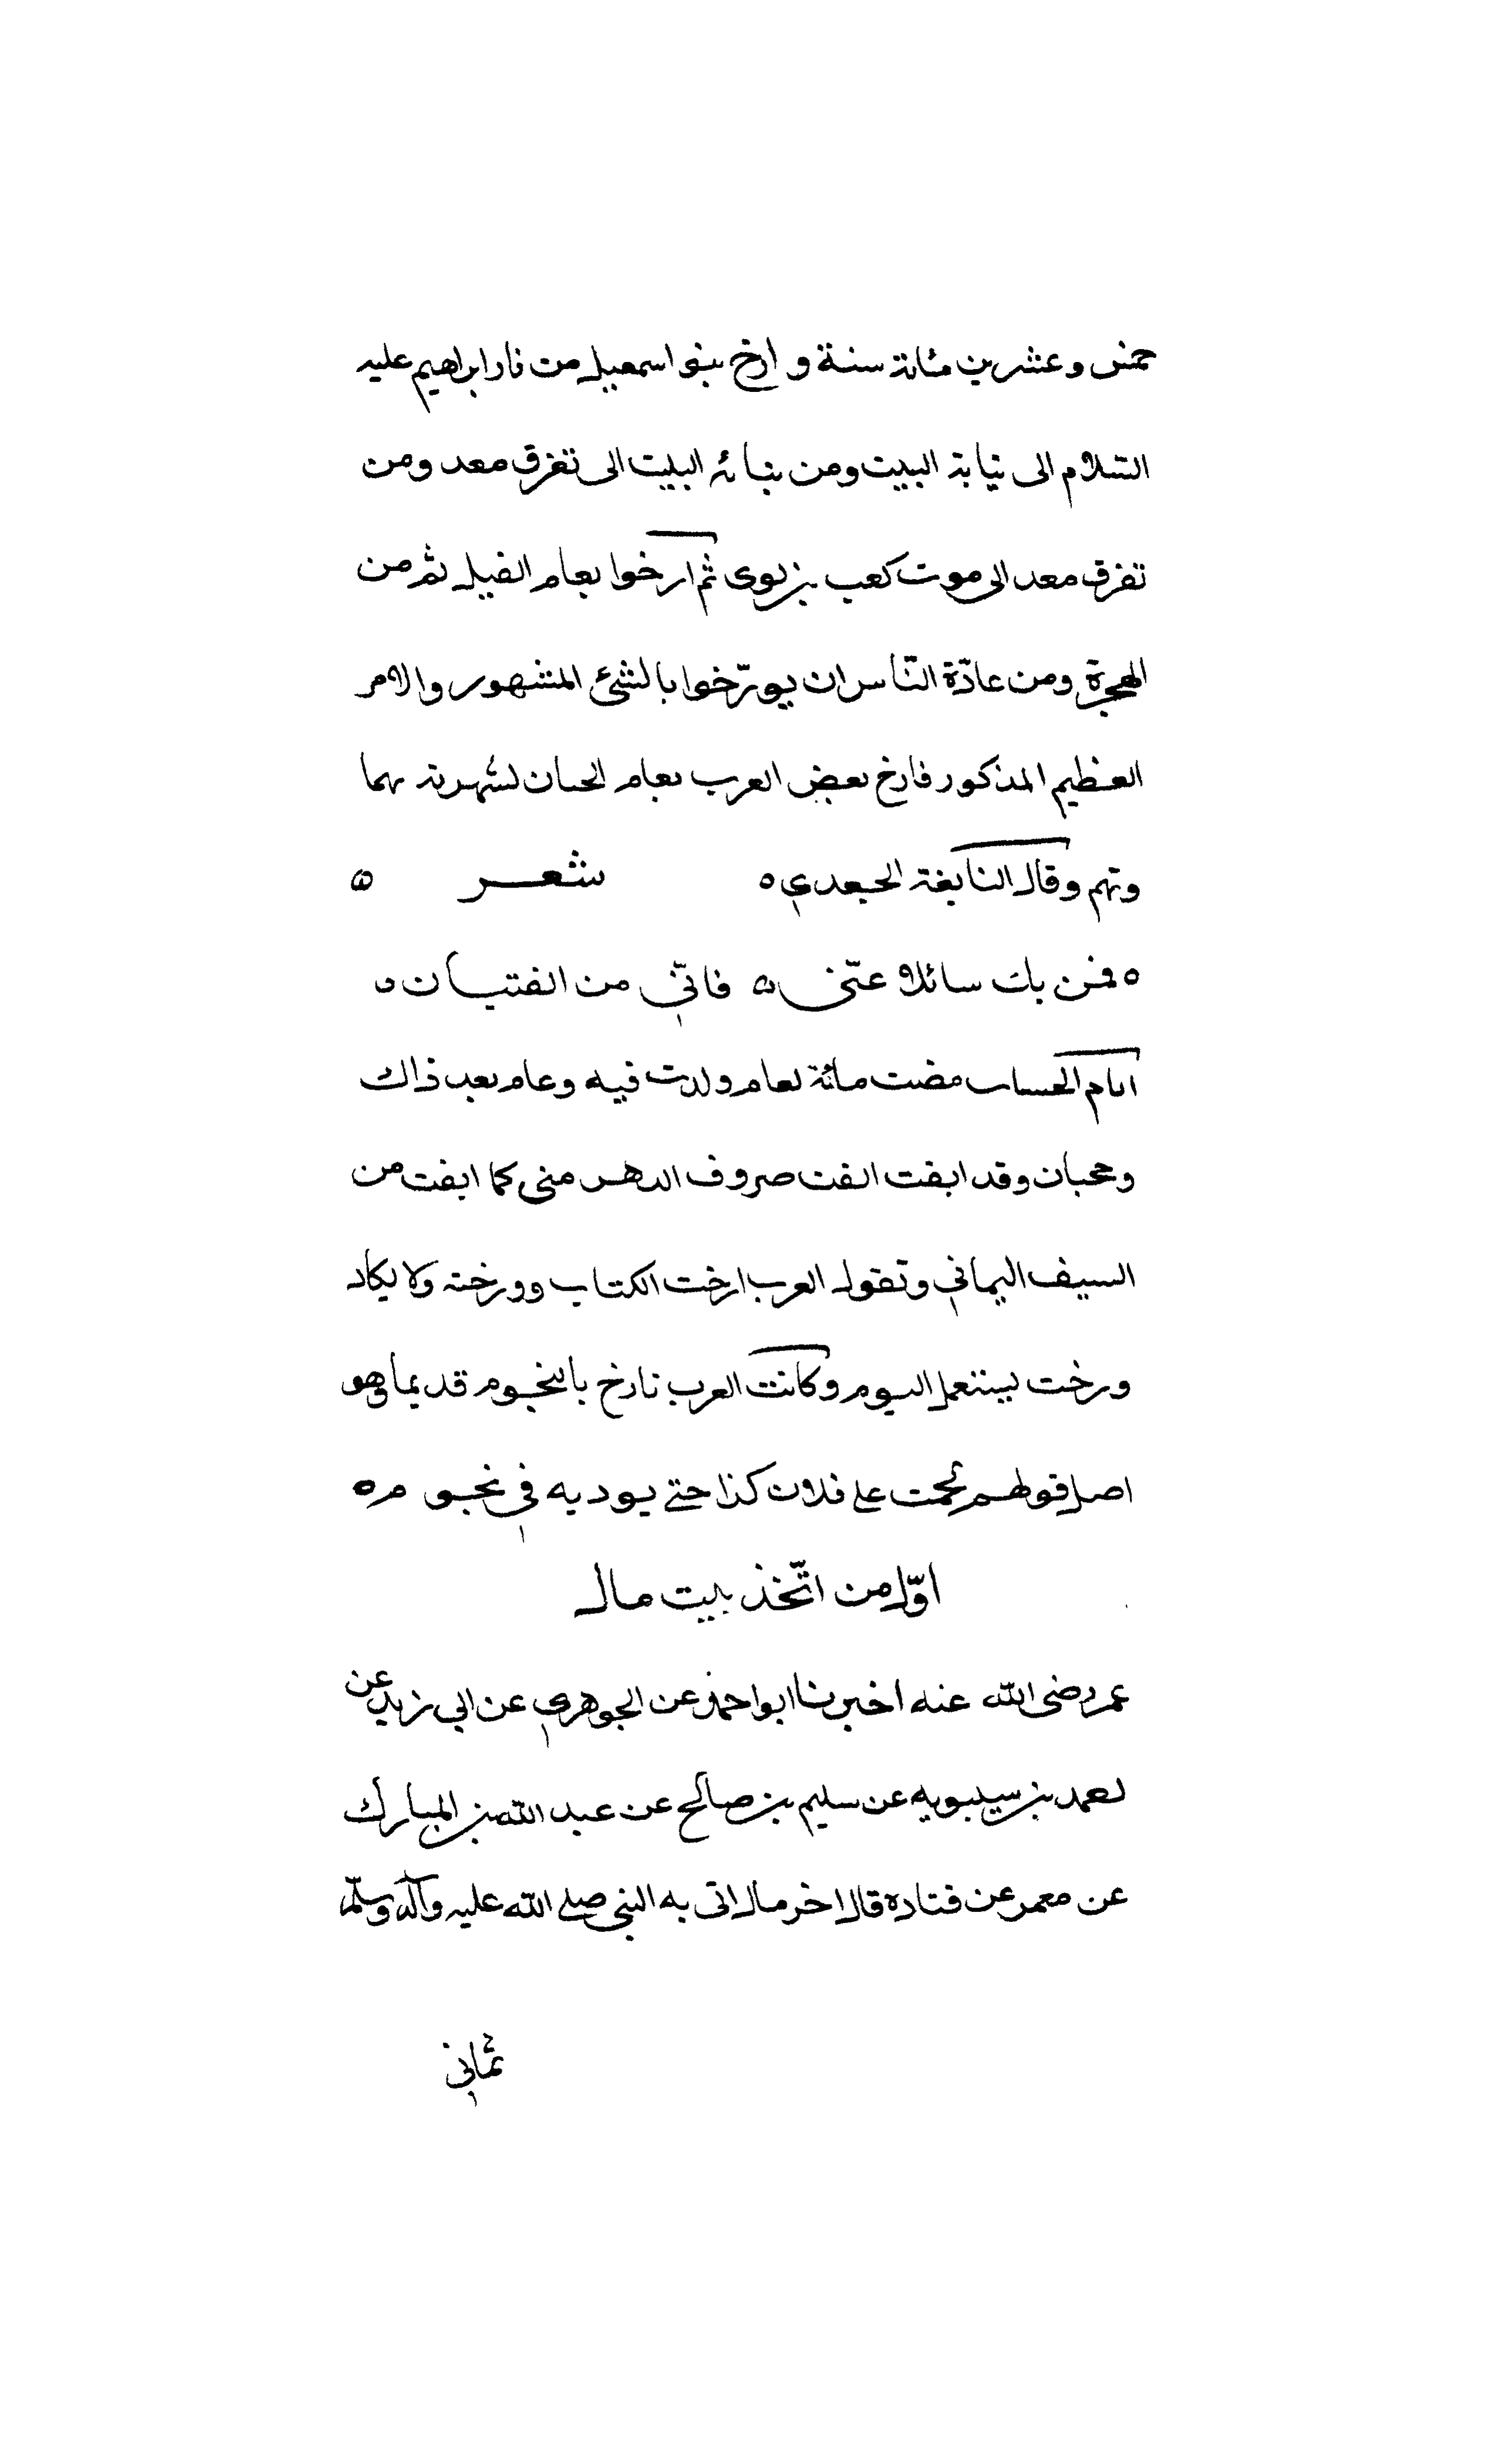 خمس وعشرين مئانة سنة و ارخ بنو اسمعيل من نار ابراهيم عليه
السّلام الى نيابة البيت ومن بنائه البيت الى تفرق معد ومن
تفرق معد الى موت كعب بن لوى ثم ارخوا بعام الفيل ثم من
الهجرة ومن عادّة النّاس ان يورّخوا بالشئ المشهور والامر
العظيم المذكور فارخ بعض العرب بعام الحبان لشهرته بهما
وتهم وقال النابغة الجعدي ه شعر ه
ه فمن يك سائلا عنّى ه فانّي من الفتيان ه
ايام الحساب مضت مائة لعام ولدت فيه وعام بعد ذاك
وحجبان وقد ابقت الفت صروف الدهر منى كما ابقت من
السيف اليماني وتقول العرب ارخت الكتاب وورخته ولا يكاد
ورخت يستعمل اليوم وكانت العرب تارخ بالنجوم قديما وهو
اصل قولهم نجمت على فلان كذا حتى يوديه في نجوم ه
اوّل من اتّخذ بيت مال
عمر رضى الله عنه اخبرنا ابو احمد عن الجوهري عن ابي زيد عن
لعمد بن سيبويه عن سليم بن صالح عن عبد الله بن المبارك
عن معمر عن قتاده قال اخر مال اتى به النبى صلى الله عليه وآله وسلّم
ثماني